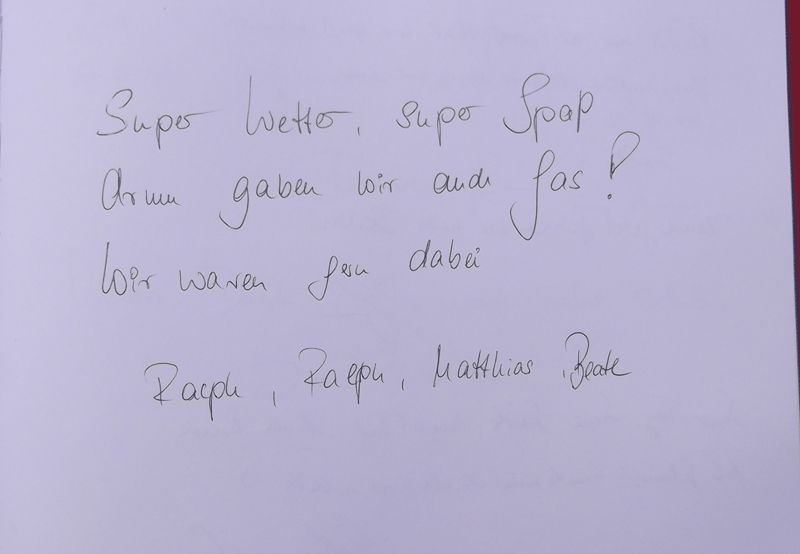 Super Wetter, super Spaß
Drum gaben wir auch Gas!
Wir waren gern dabei
Ralph, Ralph, Matthias, Beate